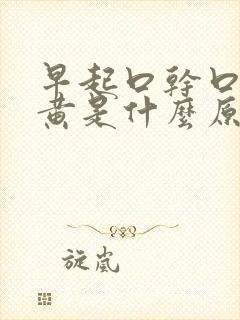 早起口幹口
黃是什麼原
旋嵐